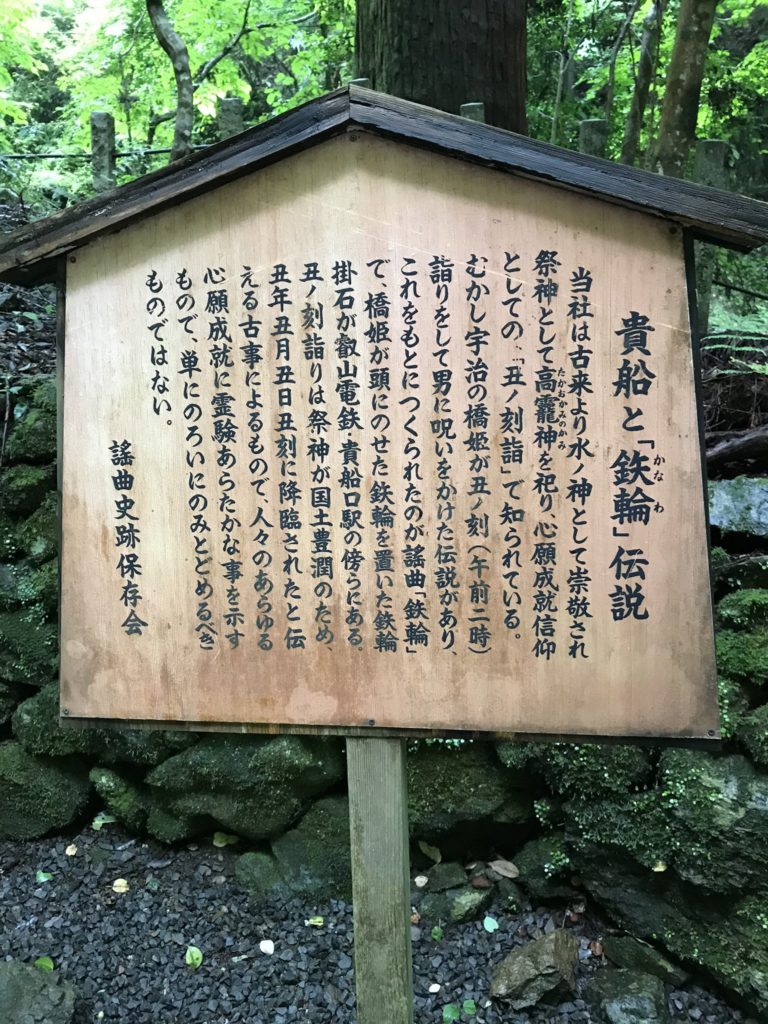 貴船と「鉄輪」伝説
かなわ
当社は古来より水ノ神として崇敬され
祭神として高龗神を祀り、心願成就信仰
たかおかみのかみ
としての、「丑ノ刻詣」で知られている。
むかし宇治の橋姫が丑ノ刻(午前二時)
詣りをして男に呪いをかけた伝説があり、
これをもとにつくられたのが謡曲「鉄輪」
で、橋姫が頭にのせた鉄輪を置いた鉄輪
掛石が叡山電鉄・貴船口駅の傍らにある。
丑ノ刻詣りは祭神が国土豊潤のため、
丑年丑月丑日丑刻に降臨されたと伝
える古事によるもので、人々のあらゆる
心願成就に霊験あらたかな事を示す
もので、単にのろいにのみとどめるべき
ものではない。
謡曲史跡保存会